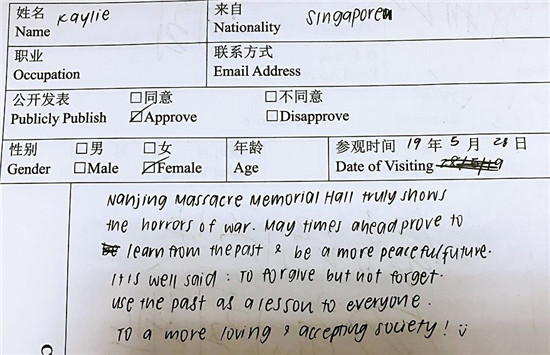 姓名 来自
Name Kaylie Nationality Singaporean
职业 联系方式
Occupation Email Address
公开发表 □同意 □不同意
Publicly Publish ☑Approve □Disapprove
性别 □男 □女 年龄 参观时间 19 年 5 月 28 日
Gender □Male ☑Female Age Date of Visiting 28/5/19
Nanjing Massacre Memorial Hall truly shows
the horrors of war. May times ahead prove to
learn from the past & be a more peaceful future.
It is well said: To forgive but not forget.
Use the past as a lesson to everyone.
To a more loving & accepting society! :)